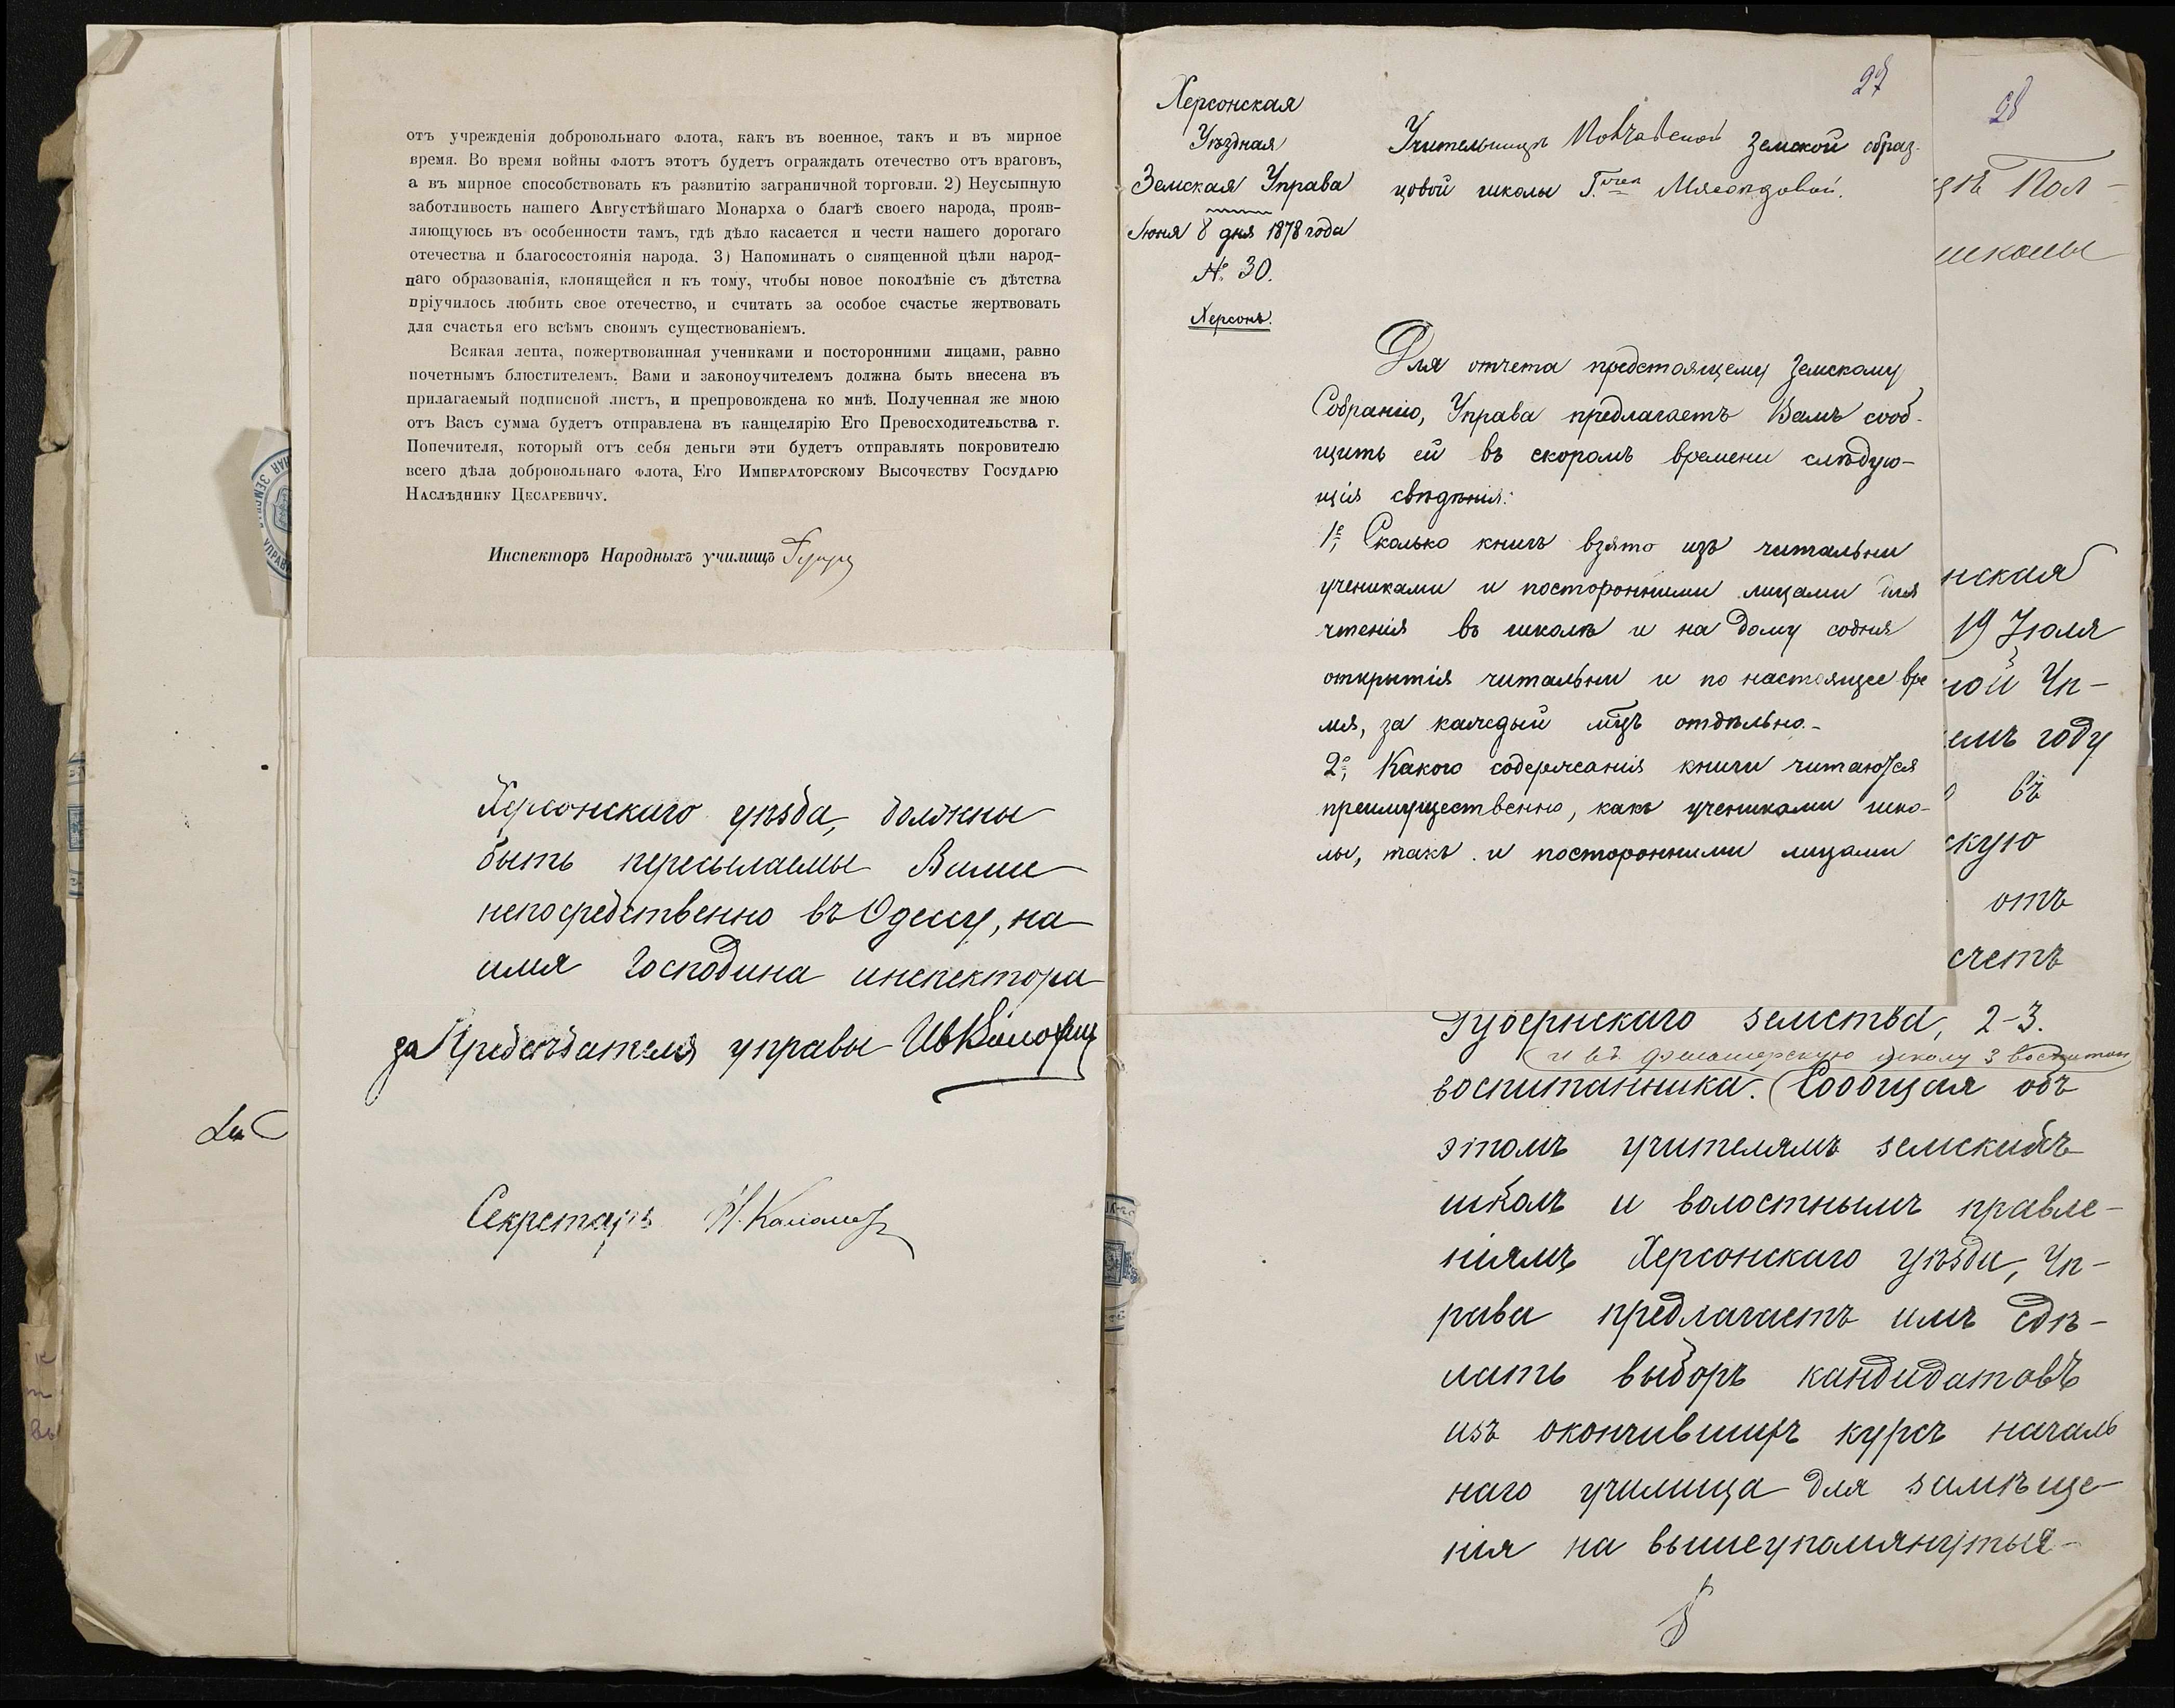 отъ учрежденія добровольнаго флота, какъ въ военное, такъ и въ мирное
время. Во время войны флотъ этотъ будетъ ограждать отечество отъ враговъ,
а въ мирное способствовать къ развитію заграничной торговли. 2) Неусыпную
заботливость нашего Августѣйшаго Монарха о благѣ своего народа, прояв-
ляющуюсь въ особенности тамъ, гдѣ дѣло касается и чести нашего дорогаго
отечества и благосостоянія народа. 3) Напоминать о священной цѣли народ-
наго образованія, клонящейся и къ тому, чтобы новое поколѣніе съ дѣтства
пріучилось любить свое отечество, и считать за особое счастье жертвовать
для счастья его всѣмъ своимъ существованіемъ.
Всякая лепта, пожертвованная учениками и посторонними лицами, равно
почетнымъ блюстителемъ, Вами и законоучителемъ должна быть внесена въ
прилагаемый подписной листъ, и препровождена ко мнѣ. Полученная же мною
отъ Васъ сумма будетъ отправлена въ канцелярію Его Превосходительства г.
Попечителя, который отъ себя деньги эти будетъ отправлять покровителю
всего дѣла добровольнаго флота, Его Императорскому Высочеству Государю
Наслѣднику Цесаревичу.
Инспекторъ Народныхъ училищъ
Херсонскаго уѣзда, должны
быть пересылаемы Вами
непосредственно въ Одессу, на
имя Господина инспектора
за Предсѣдателя управы
Секретарь
27
Херсонская
Уѣздная
Земская Управа
Іюня 8 дня 1878 года
№ 30.
Херсонъ.
Учительницѣ земской образ-
цовой школы Мясоѣдовой.
Для отчета предстоящему Земскому
Собранію, Управа предлагаетъ Вамъ сооб-
щить ей въ скоромъ времени слѣдую-
щія свѣдѣнія:
1е, Сколько книгъ взято изъ читальни
учениками и посторонними лицами для
чтенія въ школѣ и на дому со дня
открытія читальни и по настоящее вре
мя, за каждый мцъ отдѣльно.-
2е, Какого содержанія книги читаются
преимущественно, какъ учениками шко-
лы, такъ и посторонними лицами
28
цѣ Пол-
школы
нская
19 Іюля
ной Уп-
емъ году
въ
скую
отъ
счетъ
Губернскаго земства, 2-3.
и въ фельдшерскую школу 3 воспитан
воспитанника. Сообщая объ
этомъ учителямъ земскихъ
школъ и волостнымъ правле-
ніямъ Херсонскаго уѣзда, Уп-
рава предлагаетъ имъ сдѣ-
лать выборъ кандидатовъ
изъ окончившихъ курсъ началь
наго училища для замѣще-
нія на вышеупомянутыя